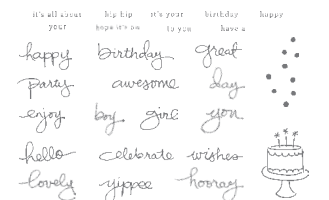 it's all about hip hip it's your birthday happy
your hope it's be to you have a
happy birthday great
party awesome day
enjoy boy girl you
hello celebrate wishes
lovely yippee hooray